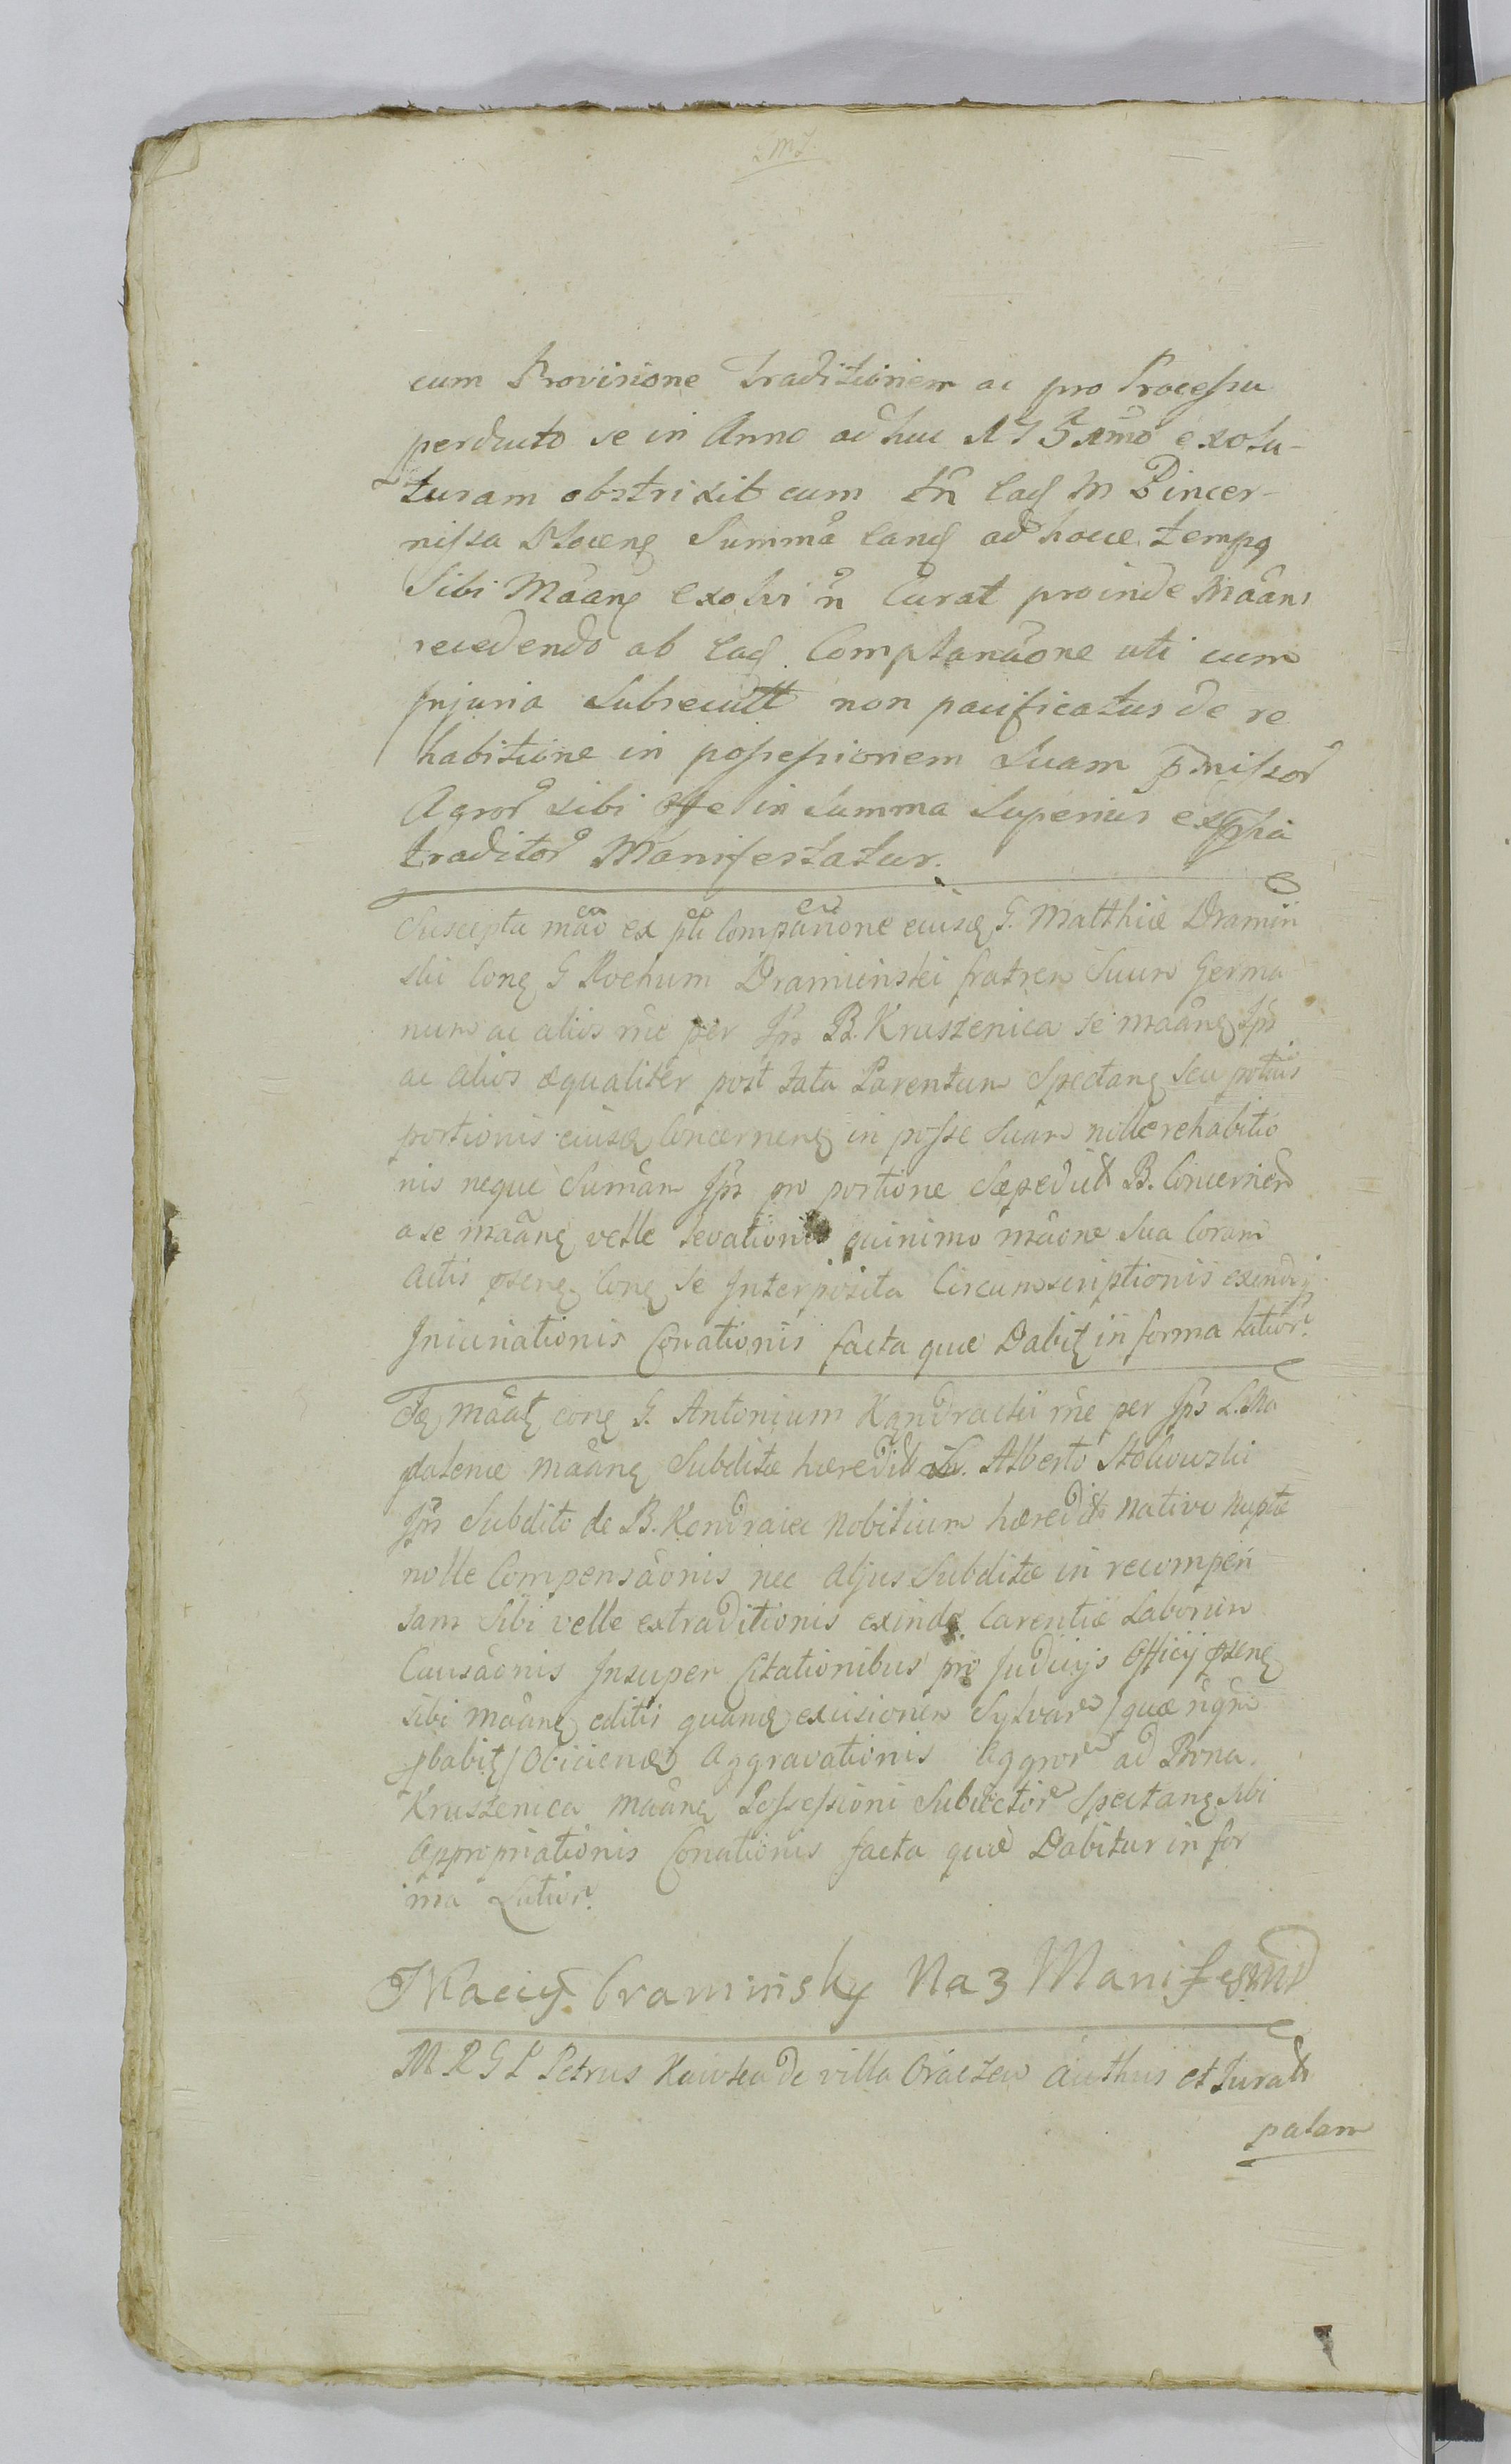 cum Provisione traditionem ac pro Processu
perducto se in Anno ad huc 175 exolu-
turam obstrixit cum tn̄ ead M Pincer-
nissa Summa ead ad hocce tempq
Sibi Māanꝫ exolvi n̄ Curat proinde Māans
recedendo ab ead Complanāone uti cum
Injuria Subsecutt non pacificatus de re
habitione in possessionem Suam p̄missor
Agror sibi in Summa Superius
traditor Manifestatur.
Suscepta māo ex pti Compānone eiusd G. Matthiæ Dramin
ski Conꝫ G Rochum Draminski fratrem Suum Germa
num ac alios rn̄e per Ips B. Kruszenica se māanꝫ Ips
ac alios æqualiter post fata Parentum Spectanꝫ Seu potius
portionis eiusd Concernenꝫ in posse Suam nolle rehabitio
nis neque Sumām Ips pro portione Sæpedict B. Concernen
a se māanꝫ velle levationis quinimo māone Sua Coram
Actis psenꝫ Conꝫ Se Interposita Circumscriptionis exindeq
Iniuriationis Conationis facta quæ Dabitꝫ in forma latior.
Idꝫ māatꝫ conꝫ G. Antonium Kondracki rn̄e per Ips L. Ma
gdalenæ māanꝫ Subditæ hæredit L. Alberto
Ips Subdito de B. Kondraiec Nobilium hæredit Nativo Nuptæ
nolle Compensāonis nec Aljus Subditæ in recompen
sam Sibi velle extraditionis exindꝫ Carentiæ Laborum
Causāonis Insuper Citationibus pro Judicijs Officij psenꝫ
sibi māanꝫ editis quamꝫ excisionem Sylvar / quæ nqm
pbabitꝫ / Obiicienꝫ Aggravationis Aggror ad Bona
Kruszenica māanꝫ Possessioni Subiector Spectanꝫ Sibi
Appropriationis Conationis facta quæ Dabitur in for
ma Latior.
Maciy Draminsky Na 3 Manifesund
M R G L Petrus Kawka de villa authus et Jurat
palam